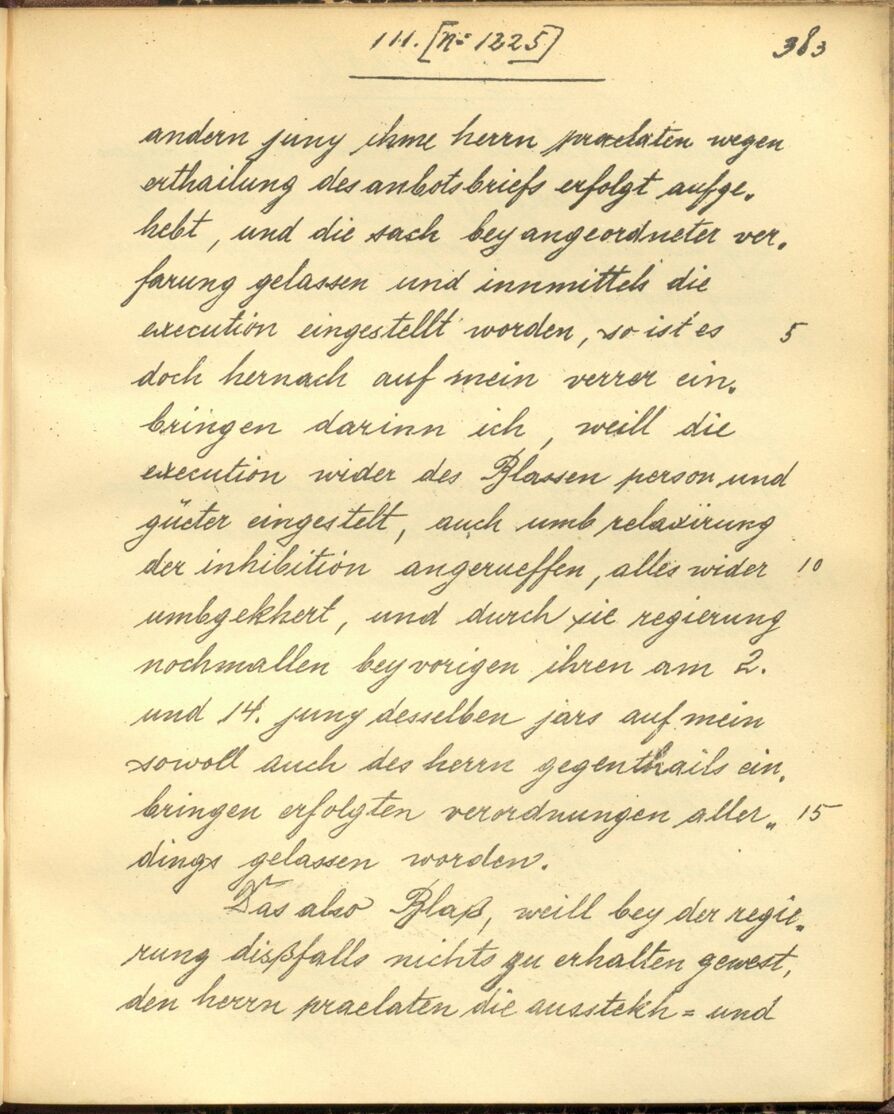 III. [n= 1225]
383
andern juny ihme herrn praelaten wegen
erthailung des anbotsbriefs erfolgt aufge„
hebt, und die sach bey angeordneter ver„
farung gelassen und innmittels die
execution eingestellt worden, so ist es 5
doch hernach auf mein verrer ein„
bringen darinn ich, weill die
execution wider des Blassen person und
güeter eingestelt, auch umb relaxirung
der inhibition angerueffen, alles wider 10
umbgekhert, und durch sie regierung
nochmallen bey vorigen ihren am 2.
und 14. juny desselben jars auf mein
sowoll auch des herrn gegenthails ein„
bringen erfolgten verordnungen aller„ 15
dings gelassen worden.
Das also Blaß, weill bey der regie„
rung dißfalls nichts zu erhalten gewest,
den herrn praelaten die ausstekh= und